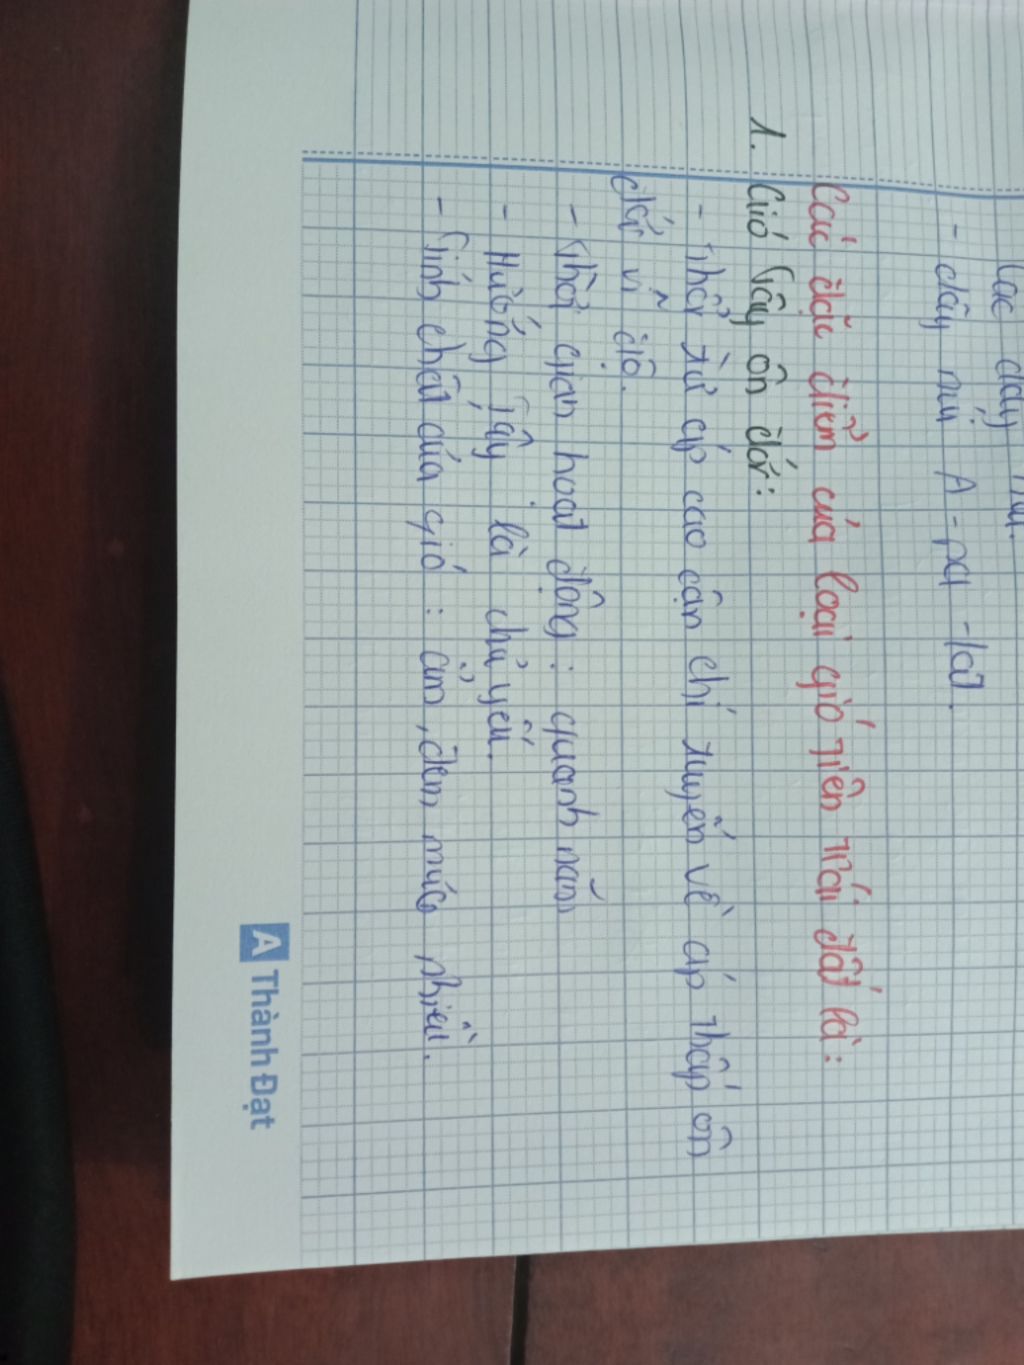 các dãy núi.
- dãy núi A-pa-lat.
Các đặc điểm của loại gió trên trái đất là:
1. Gió Tây ôn đới:
- Thổi từ áp cao cận chí tuyến về áp thấp ôn
đới vĩ độ.
- Thời gian hoạt động: quanh năm
- Hướng Tây là chủ yếu.
- Tính chất của gió: ẩm, đem mưa nhiều.
A Thành Đạt